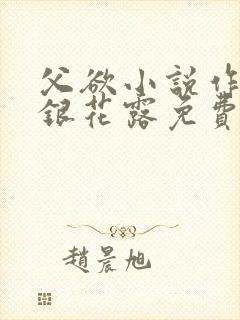 父欲小說作
銀花露免費
趙晨旭